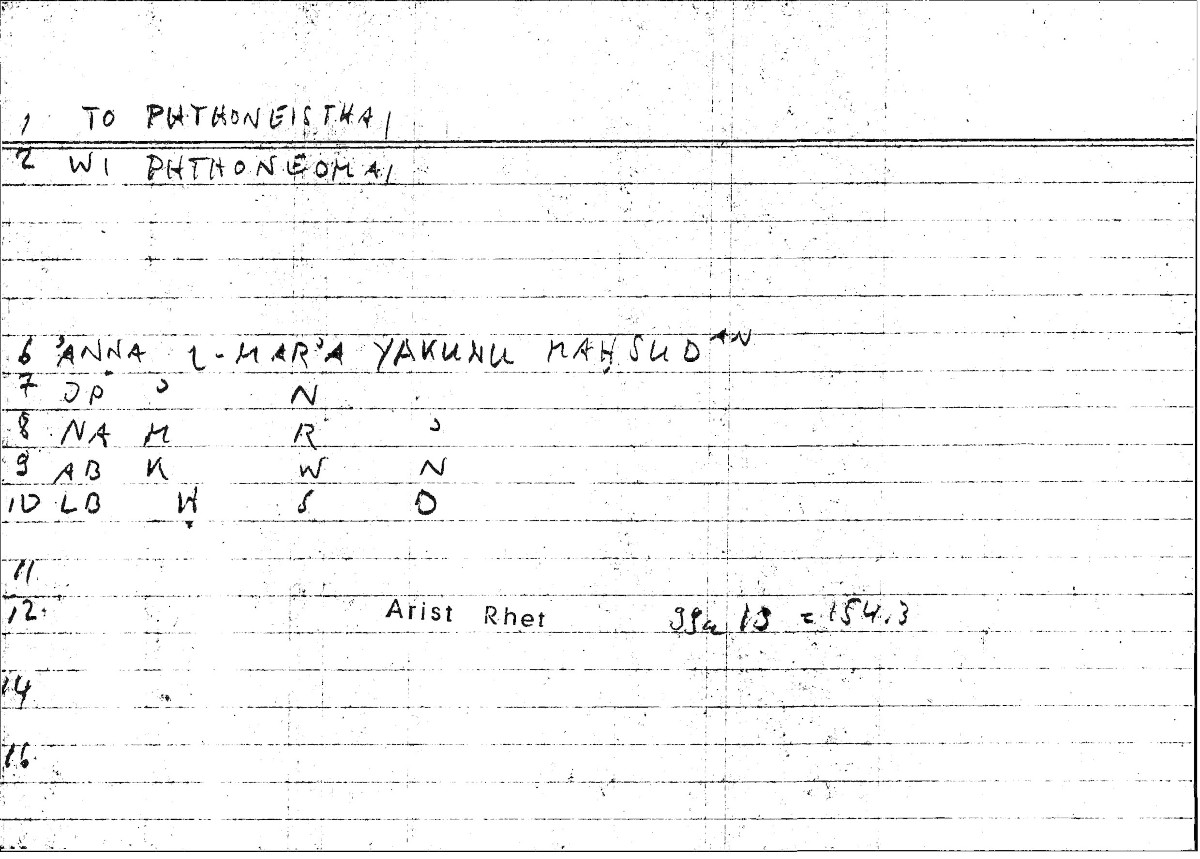 1 TO PHTHONEISTHAI
2 WI PHTHONEOMAI
6 ʾANNA L-MARʾA YAKUNU MAḤSUDAN
7 OP ʾ N
8 NA M R ʾ
9 AB K W N
10 LB Ḥ S D
11
12. Arist Rhet 99a 13 = 154.3
14
16.